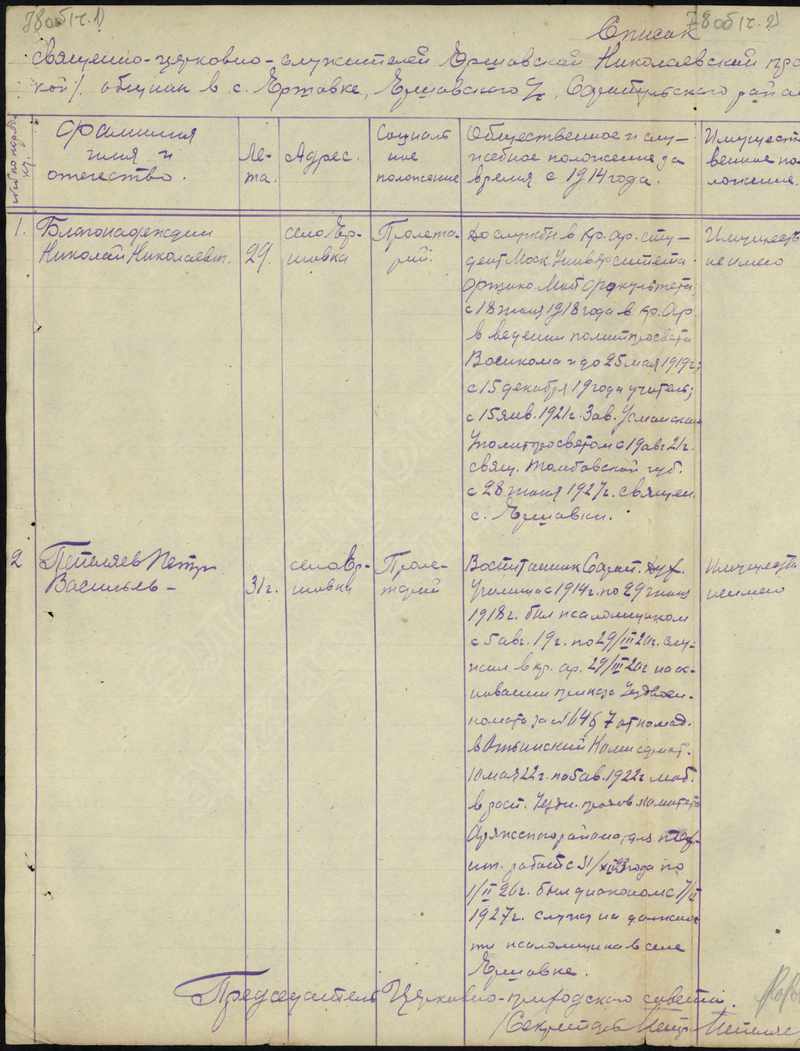 78об(ч.1) 78об(ч.2)
Список
священно-церковно-служителей Ершовской Николаевский
кой/. общин в с. Ершовке, Ершовского
Фамилия
имя и
отчество.
Ле-
та.
Адрес.
Социаль
ное
положение
Общественное и слу-
жебное положение за
время с 1914 года.
Имуществ
венное по
ложение.
1.
Благонадеждин
Николай Николаевич.
29.
село Ер-
шовка
Пролета-
рий.
До службы в кр. ар. сту-
дент Моск. Университета
физико. Мат. факультета,
с 18 июня 1918 года в кр. ар.
в ведении политпросвета
Военкома и до 25 мая 1919 г;
с 15 декабря 19 года учитель;
с 15 янв. 1921 г. Зав. Усманским
Уполитпросветом с 19 авг 21 г.
свящ. Тамбовской губ.
с 28 июня 1927 г. священ.
с. Ершовки.
Имущества
не имею
2
Пепеляев Петр
Василев-
31 г.
село Ер-
шовка
Проле-
тарий
Воспитанник Сарап. дух.
Училища с 1914 г. по 29 июня
1918 г. был псаломщиком
с 5 авг. 19 г. по 29/III 20 г. слу-
жил в кр. ар. 29/III 20 г на ос-
новании приказа Уездвоен-
комата за № отком.
в
10 мая 22 г. по 5 ав. 1922 г. моб.
в
района, для
ит. работ с 31/ года по
1/II 26 г. был диаконом с 7/II
1927 г. служу на должнос
ти псаломщика в селе
Ершовке.
Имущества
не имею
Председатель Церковно-приходского совета.
/Секретарь Петр Пепеляев